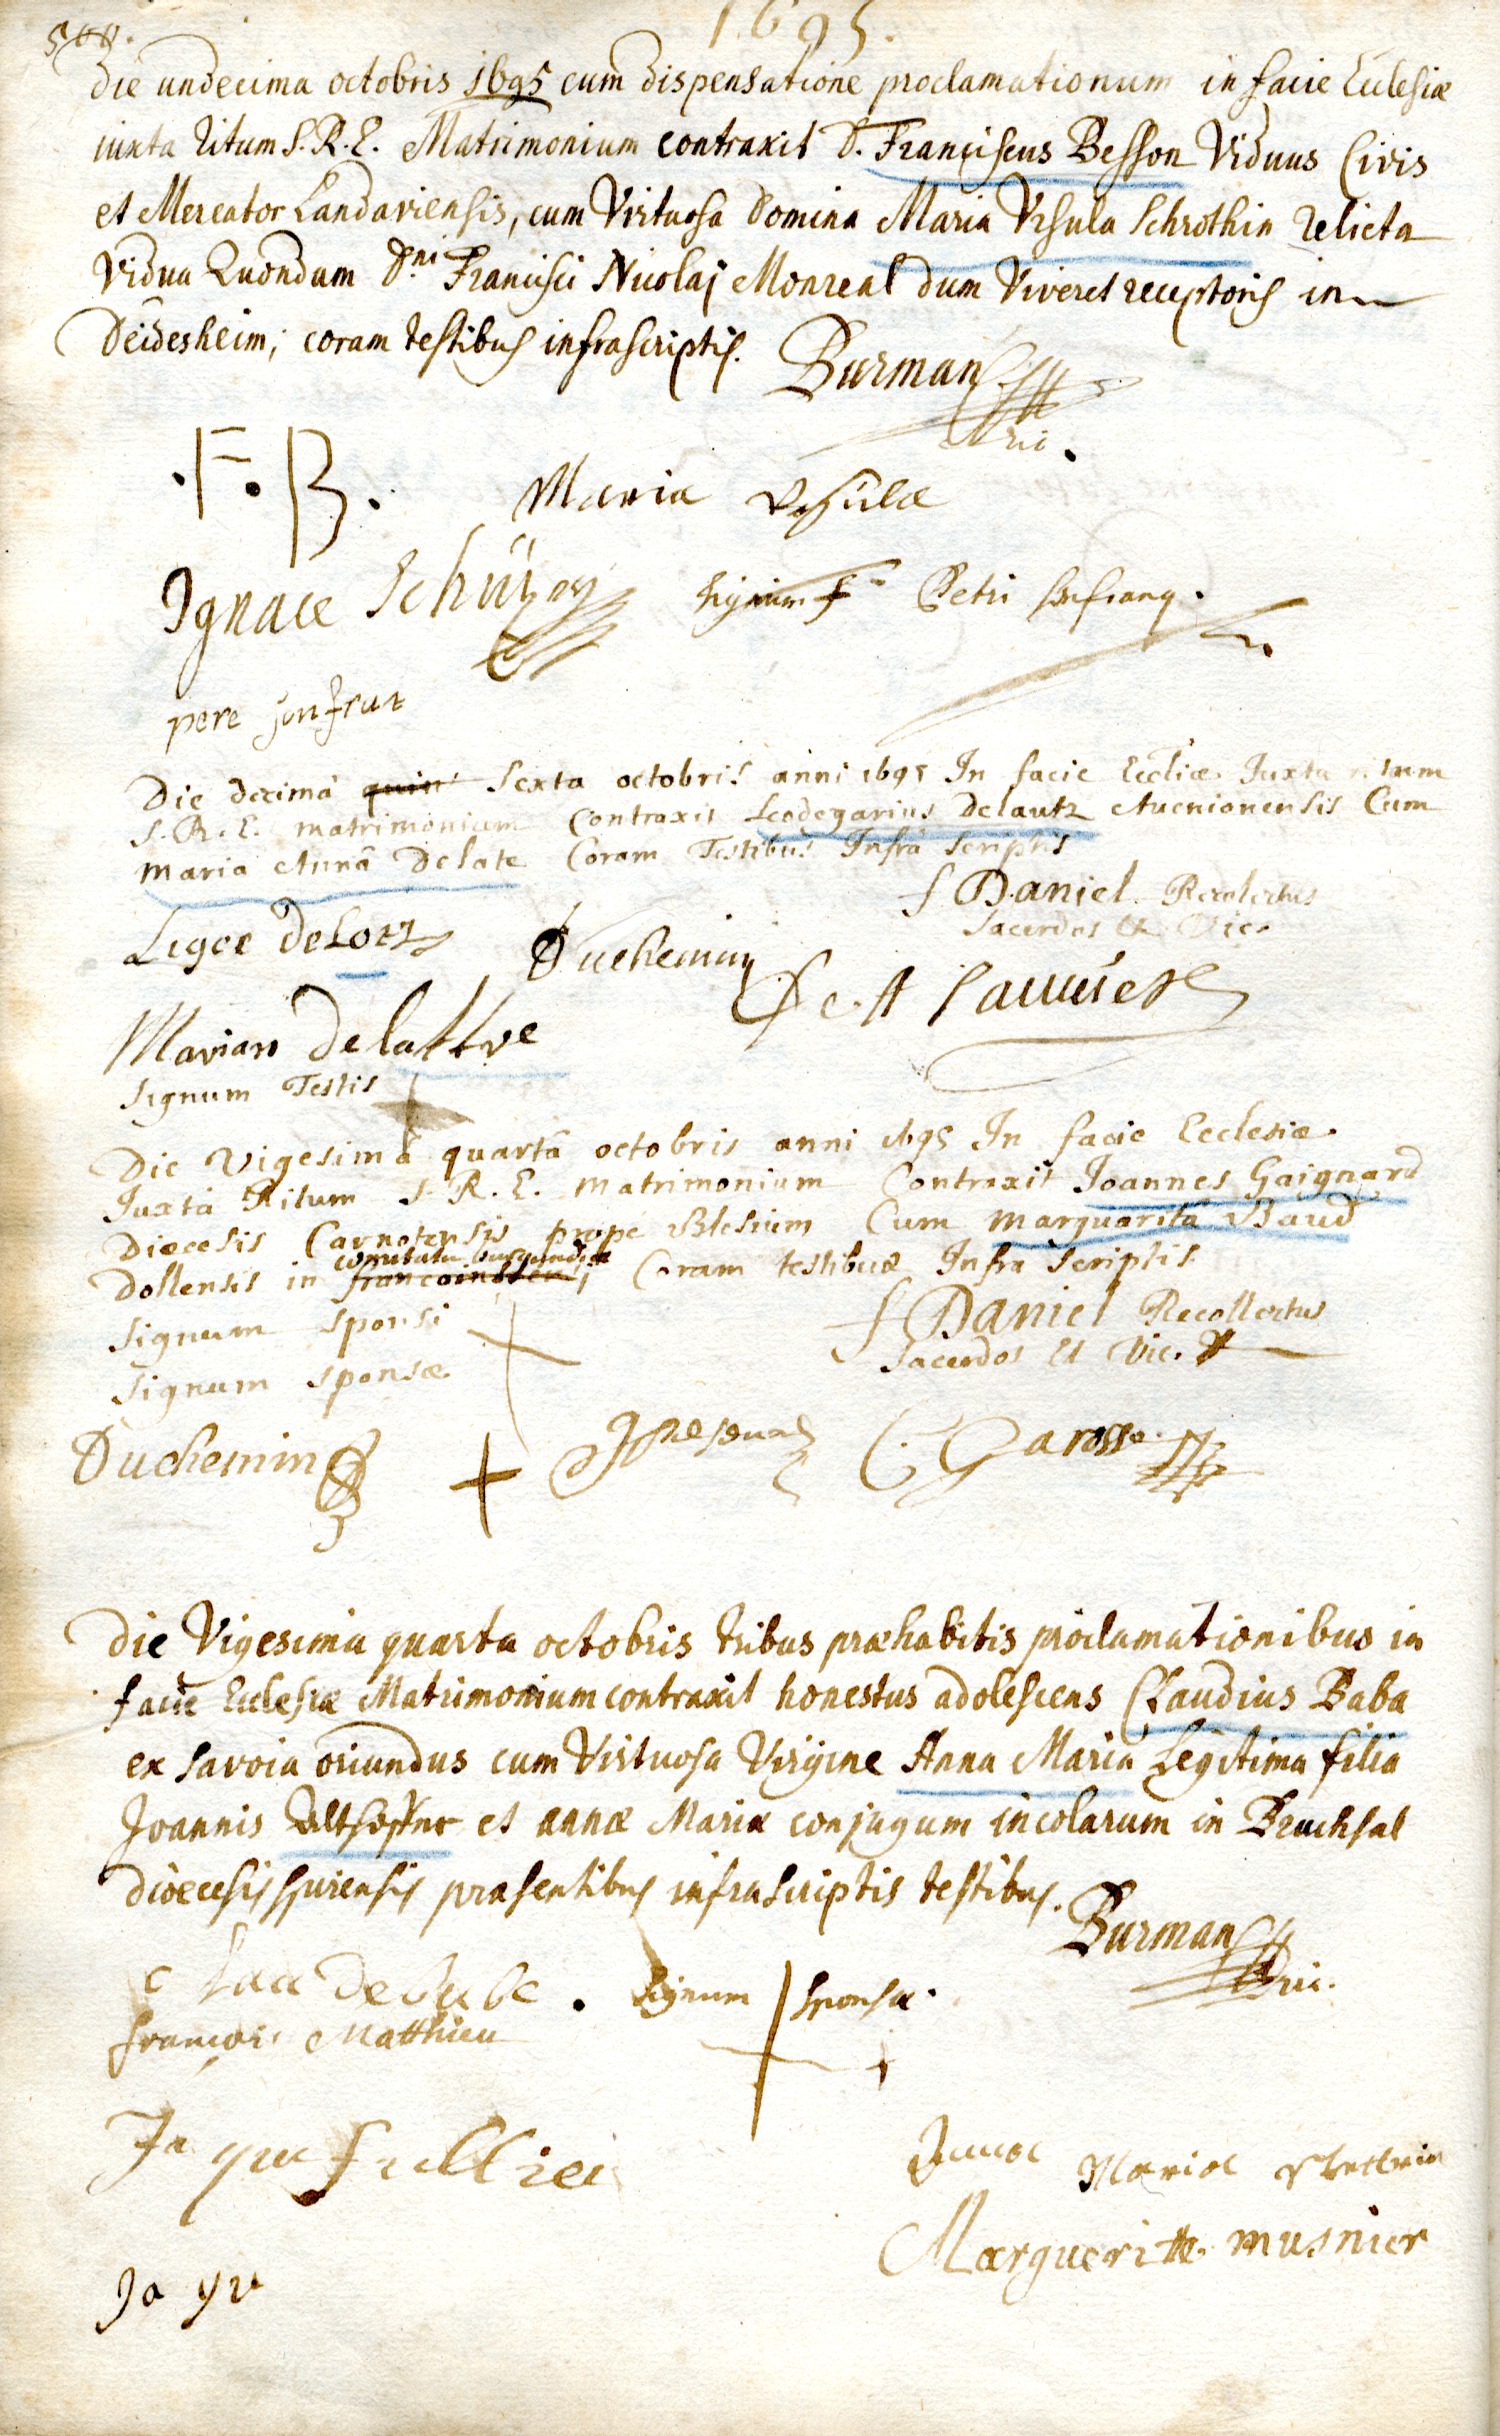 1695.
Die undecima octobris 1695 cum dispensatione proclamationum in facie Ecclesiæ
iuxta ritum S. R. E. Matrimonium contraxit D. Franciscus Besson Viduus Civis
et Mercator Landaviensis, cum Virtuosa Domina Maria Vrsula Schrothin relicta
Vidua Quondam D.ni Francisci Nicolaj Monreal dum Viveret receptoris in
Deidesheim; coram testibus infrascriptis. Burman
.F.B. Maria Vrsula
Ignace Petri
pere
Die decimâ quin Sexta octobris anni 1695 In facie Eccliæ Juxta ritum
S. R. E. matrimonium Contraxit Leodegarius Delautz Avenionensis Cum
Maria Annâ Delate Coram Testibus Infra Scriptis
f Daniel Recolectus
Sacerdos & Vic.
Legee Delotz Duchemin
Marian Delattre
Signum Testis
Die Vigesimâ quartâ octobris anni 1695 In facie Ecclesiæ
Juxtà Ritum S. R. E. Matrimonium Contraxit Joannes Gaignard
Diœcesis Carnotensis prope Blesium Cum Marguaritâ Baud
comitatu burgundiæ
Dollensis in Coram testibus Infra Scriptis
f Daniel Recollectus
Signum Sponsi
Sacerdos Et Vic.
Signum Sponsæ
Duchemin Garosse
Die Vigesima quarta octobris tribus præhabitis proclamationibus in
facie Ecclesiæ Matrimonium contraxit honestus adolescens Claudius Baba
ex Savoia oriundus cum Virtuosa Virgine Anna Maria Legitima filia
Joannis et annæ Mariæ conjugum incolarum in Bruchsal
diœcesis spirensis præsentibus infrascriptis testibus.
Burman
Signum Sponsæ.
francois Matthieu
Maria
Margueritte musnier